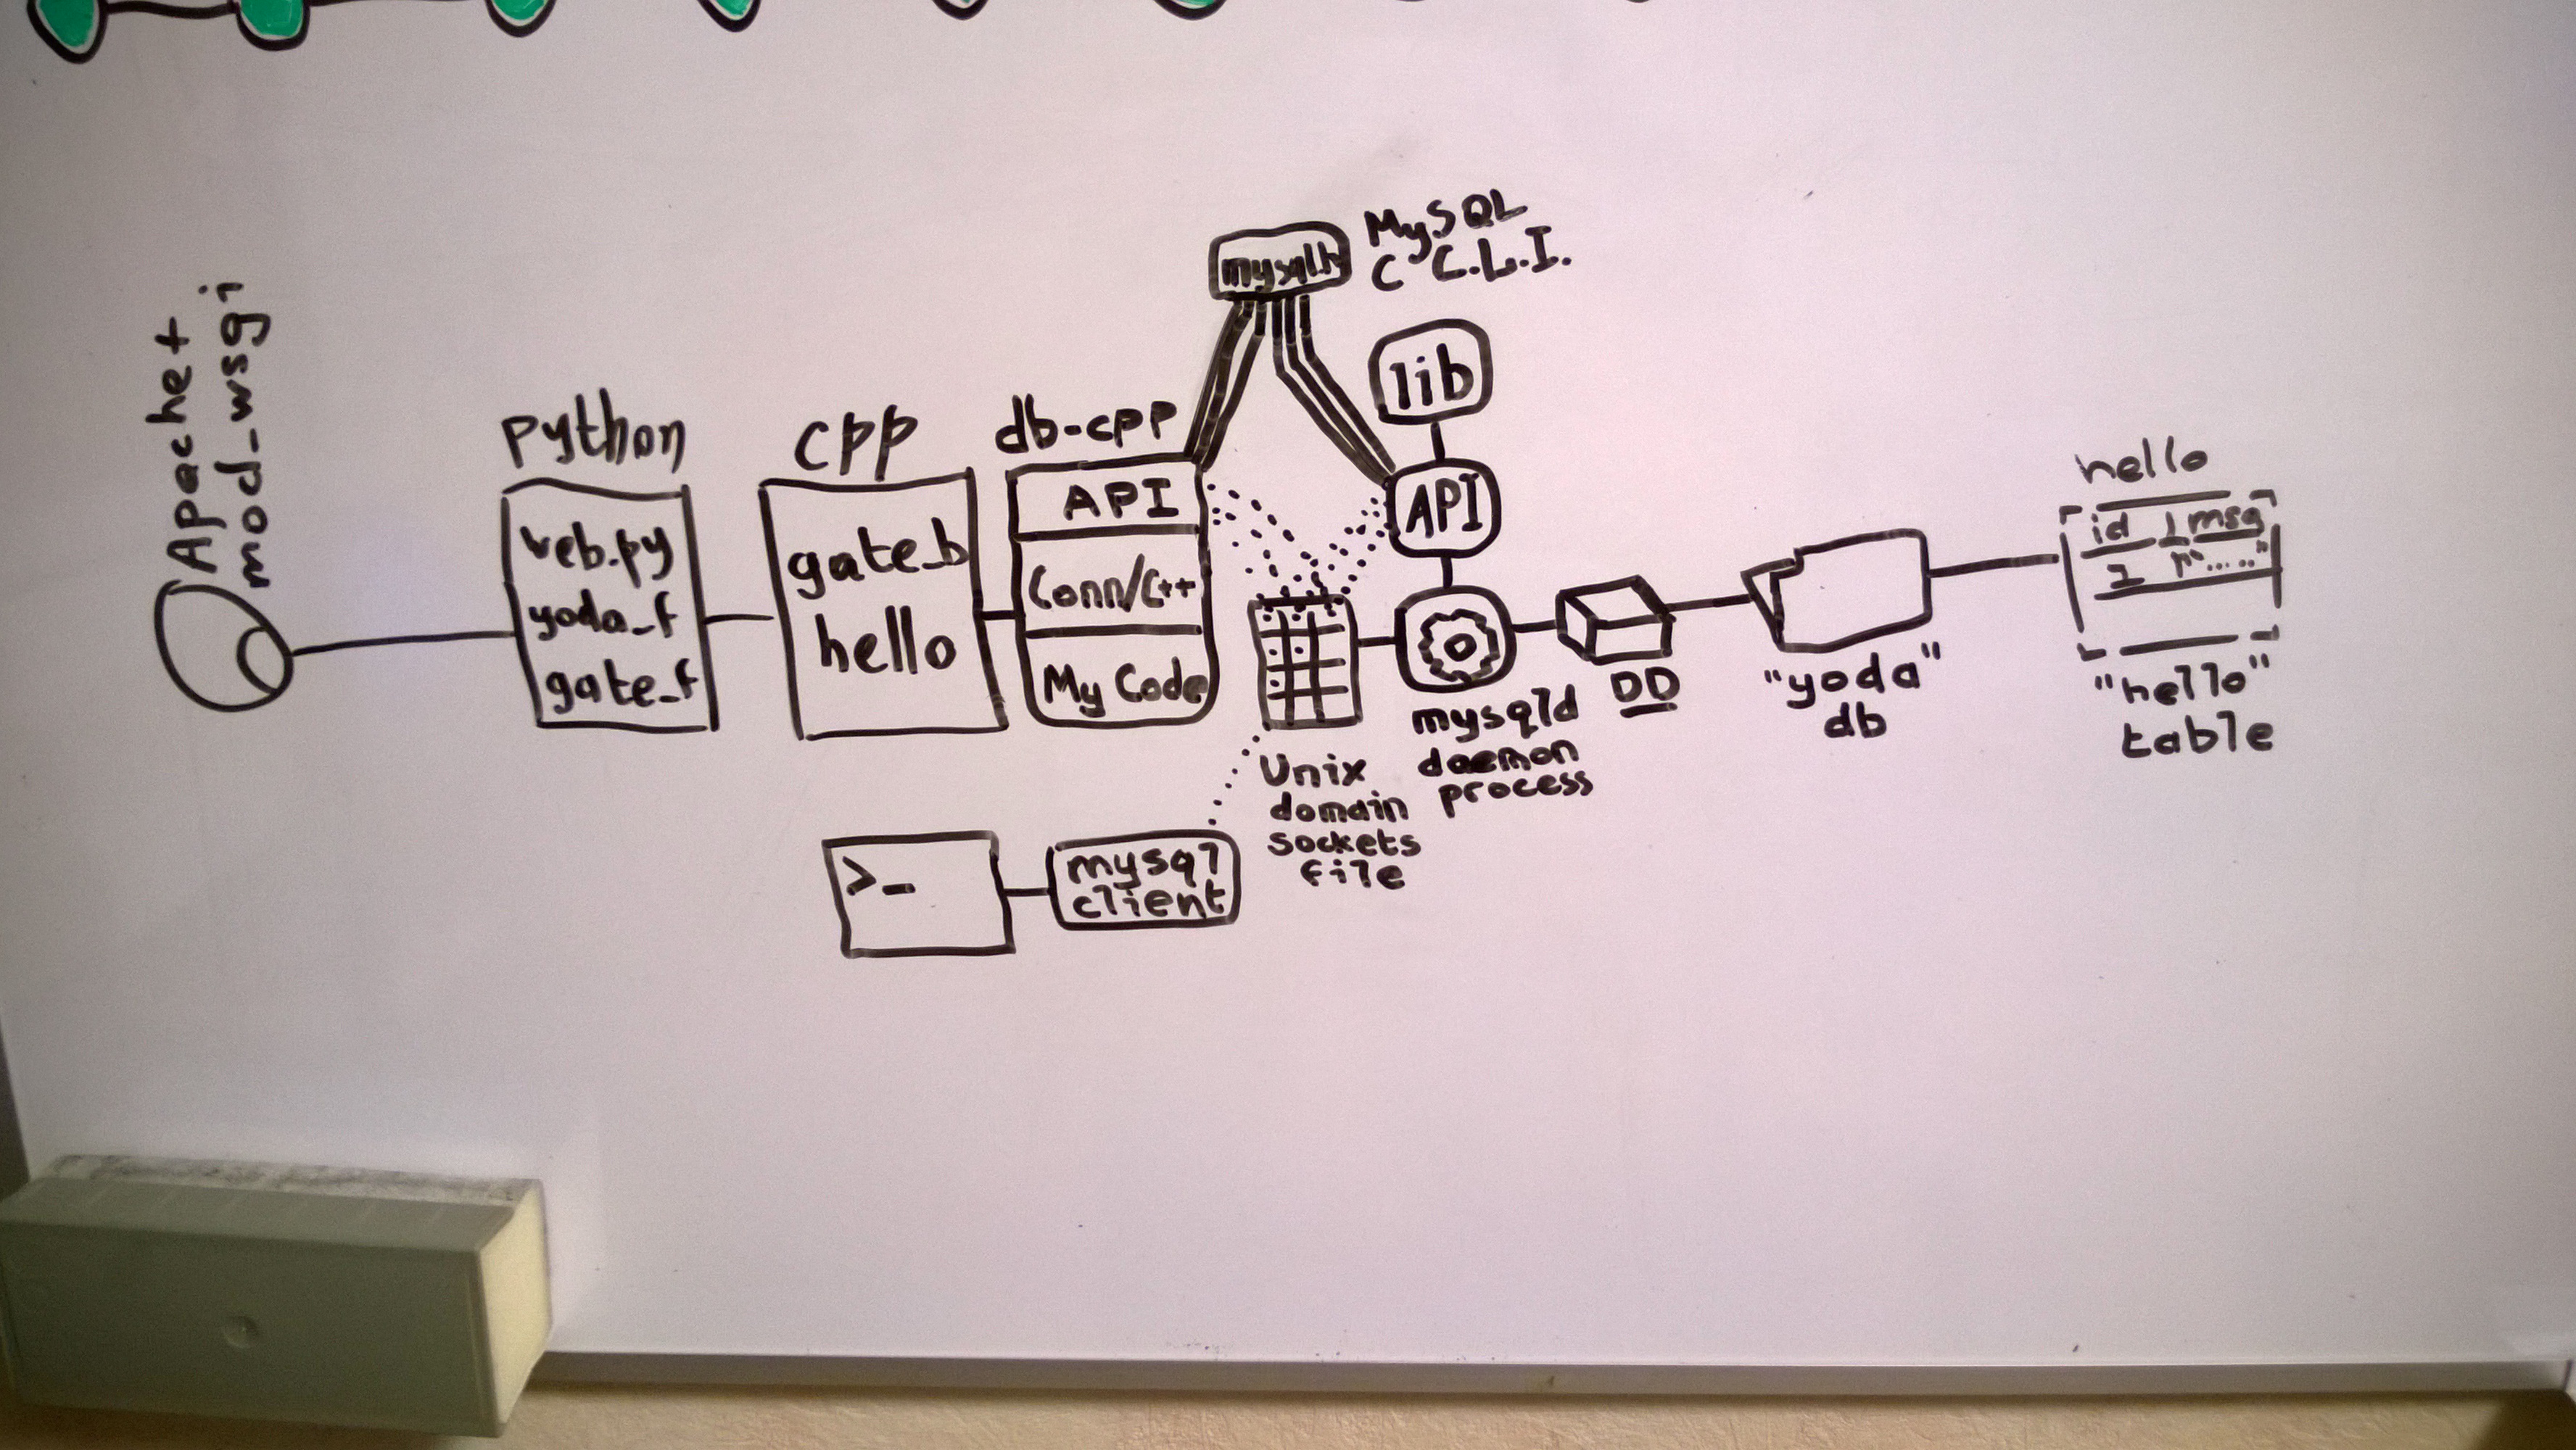 Apache+
mod_wsgi
python
web.py
yoda_f
gate_f
cpp
gate_b
hello
db-cpp
API
Conn/C++
My Code
mysql.h
MySQL
C C.L.I.
lib
API
Unix
domain
sockets
file
mysqld
daemon
process
DD
"yoda"
db
hello
id | msg
1 "....."
"hello"
table
>_
mysql
client